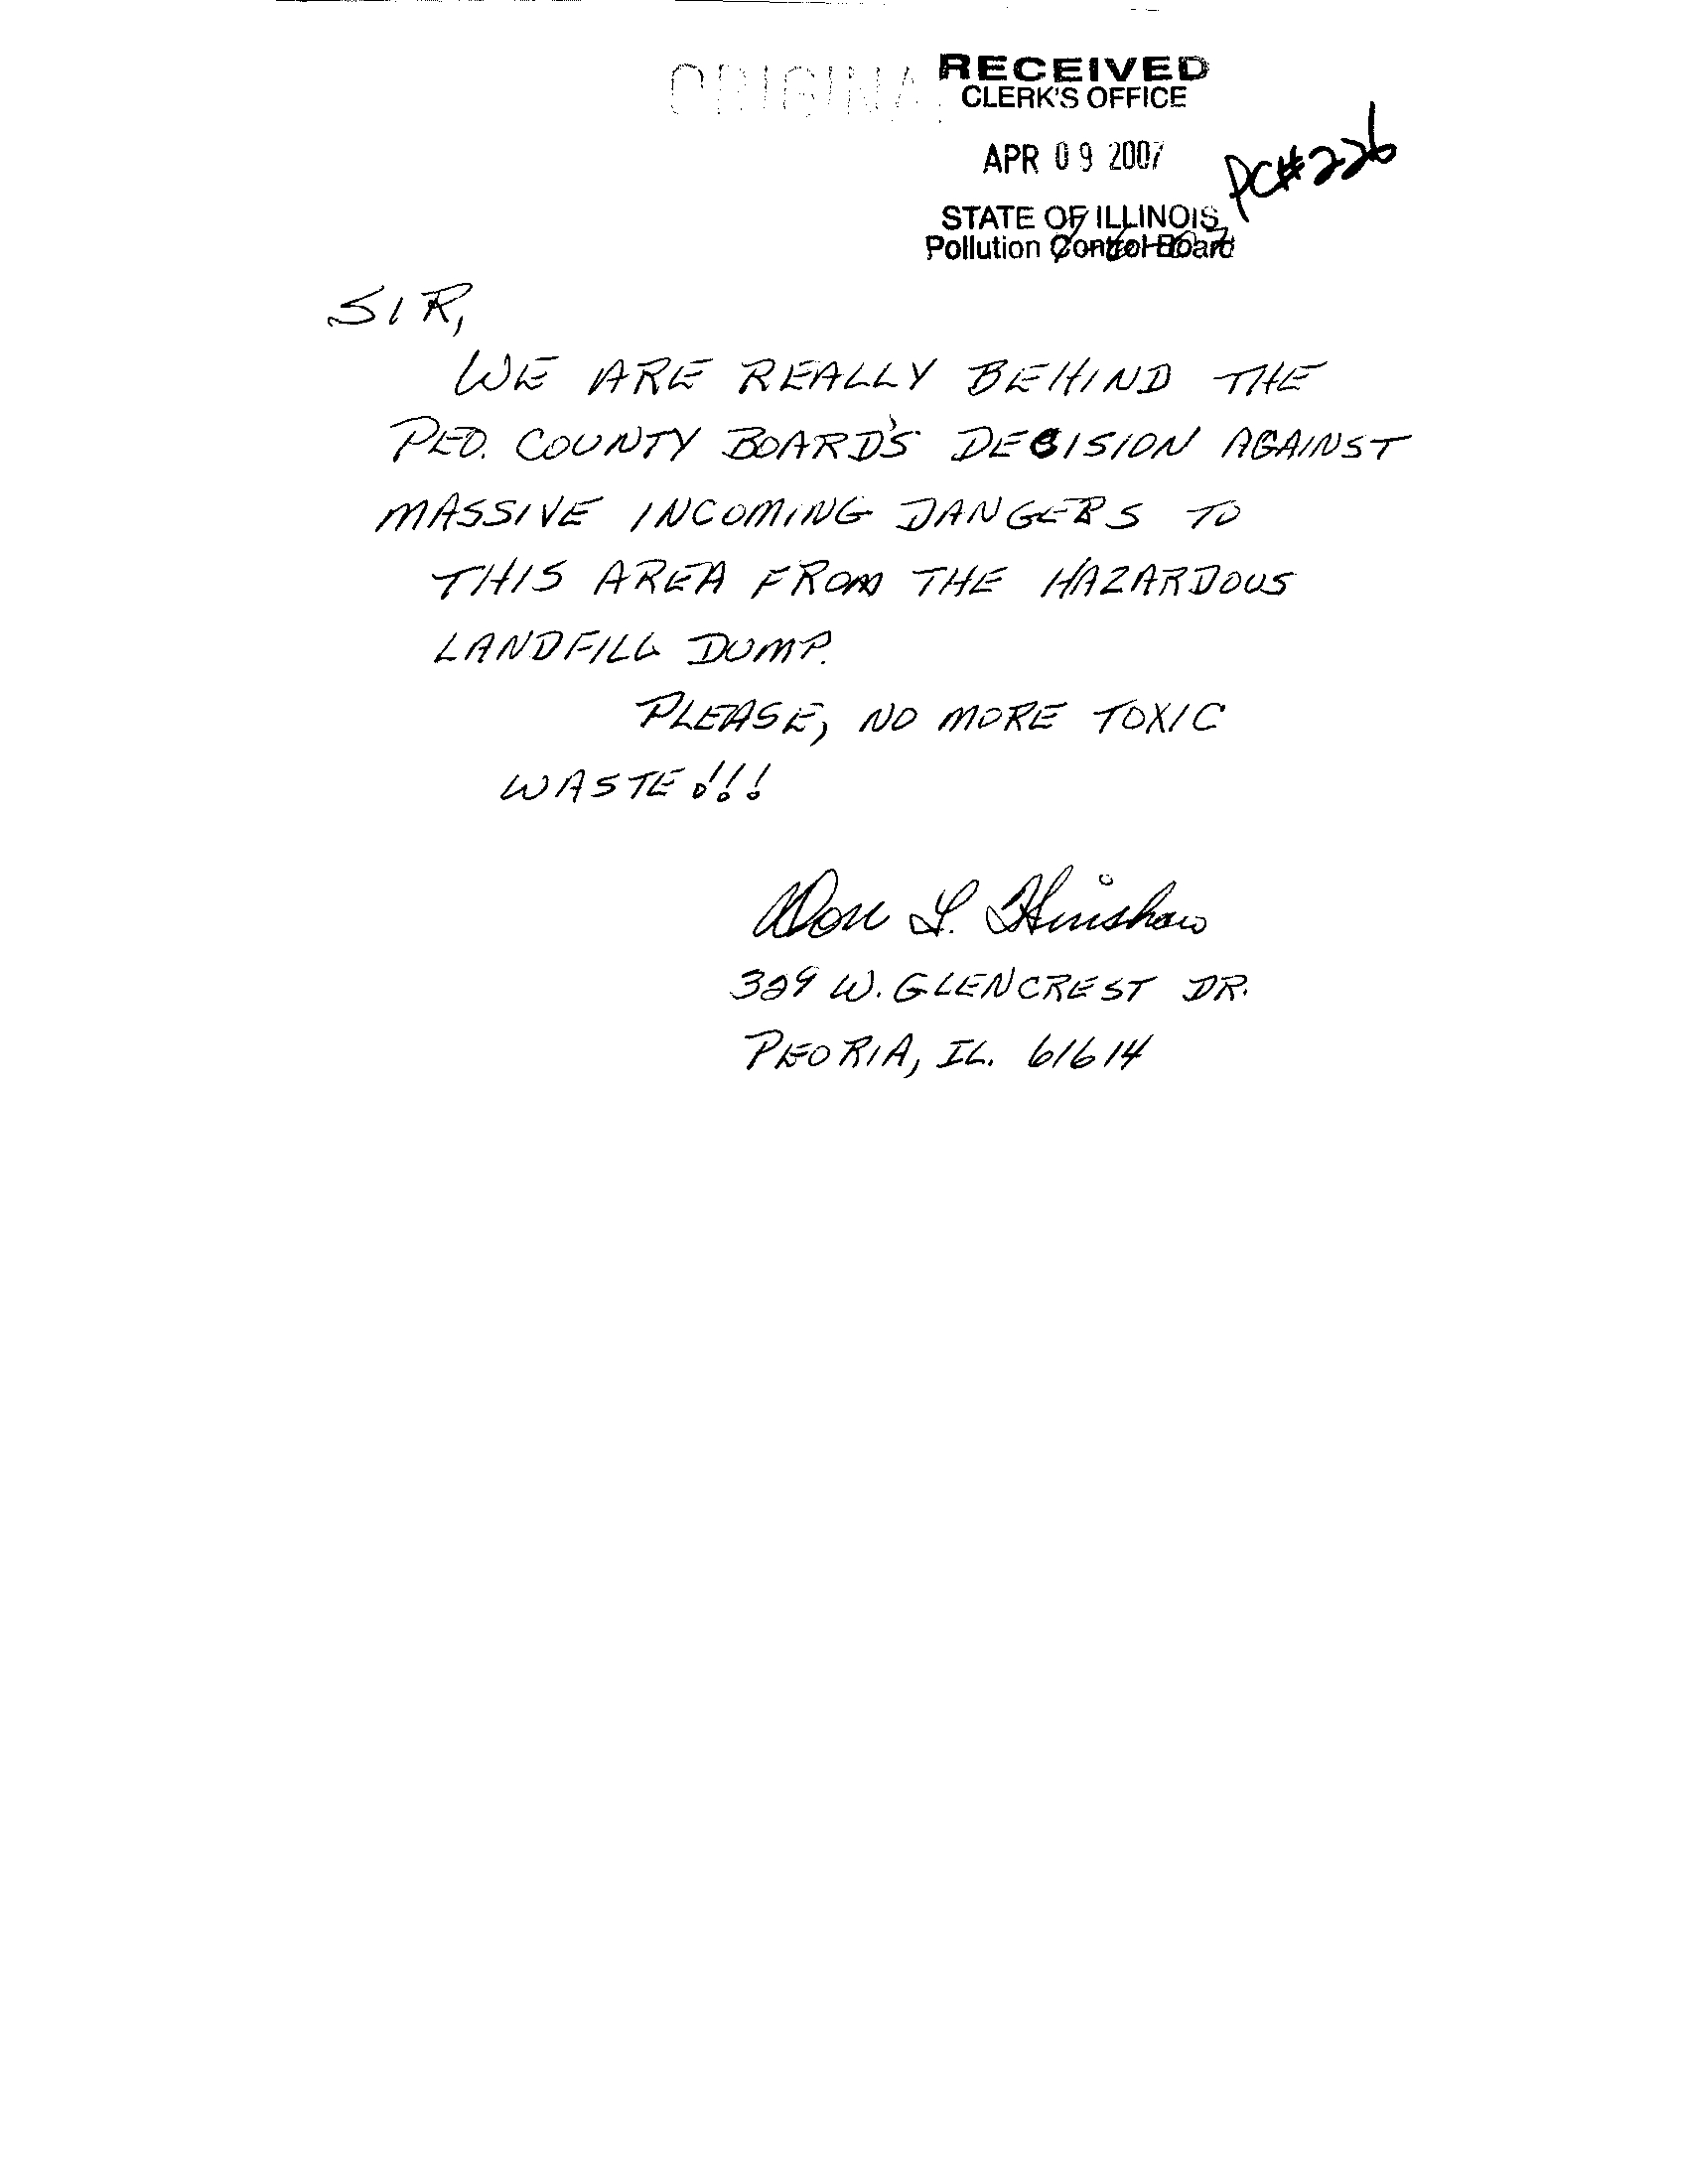 ORIGINAL
RECEIVED
CLERK'S OFFICE
APR 09 2007
PC#226
STATE OF ILLINOIS
Pollution Control Board
4-6-07
SIR,
WE ARE REALLY BEHIND THE
PEO. COUNTY BOARD'S DECISION AGAINST
MASSIVE INCOMING DANGERS TO
THIS AREA FROM THE HAZARDOUS
LANDFILL DUMP.
PLEASE, NO MORE TOXIC
WASTE!!!
Don L. Hinshaw
329 W. GLENCREST DR.
PEORIA, IL. 61614